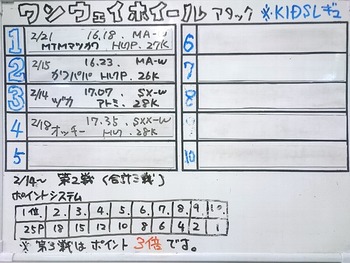 ワンウェイホイール アタック ※KIDSレギュ
1 2/21 16.18. MA-W
MTMマツカワ HLTP. 27K
2 2/15 16.23. MA-W
ガワパパ HLTP. 26K
3 2/14 17.07 SX-W
ヅカ アトミ. 28K
4 2/18 17.35. SXX-W
オッキー 28K
5
6
7
8
9
10
2/14~ 第2戦 (合計三戦)
ポイントシステム
1位. 2. 3. 4. 5. 6. 7. 8. 9. 10.
25P 18 15 12 10 8 6 4 2 1
※ 第3戦はポイント 3倍 です。